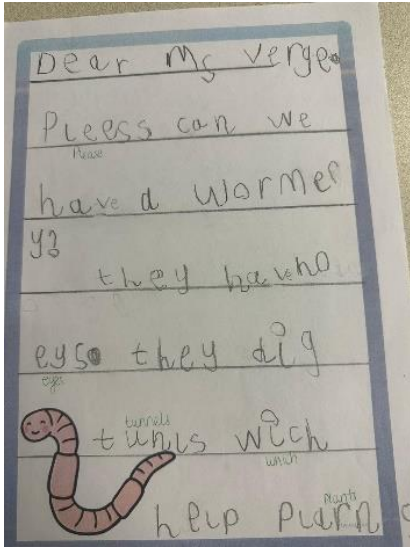 Dear Ms Verge.
Pleess can we
Please
have a wormer
y?
they have no
eys. they dig
eyes
tunnels
tunls wich
which
plants
help plarn